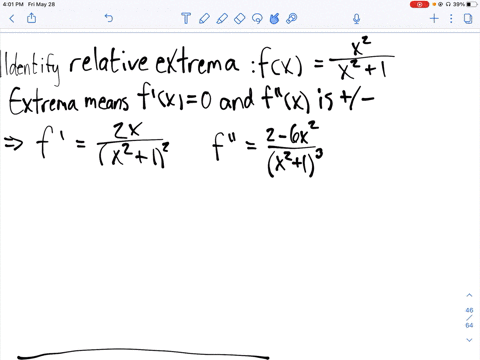 4:01 PM Fri May 28
39%
Identify relative extrema : f(x) = x²/(x²+1)
Extrema means f'(x)=0 and f"(x) is +/-
⇒ f' = 2x/(x²+1)² f" = (2-6x²)/(x²+1)³
46
/
64